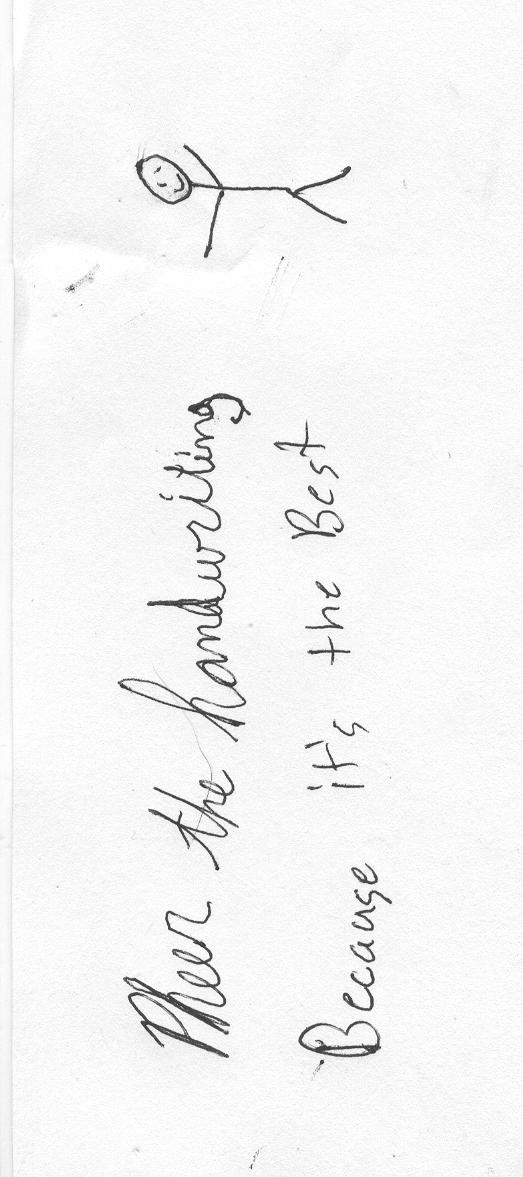 Pheer the handwriting
Because it's the Best